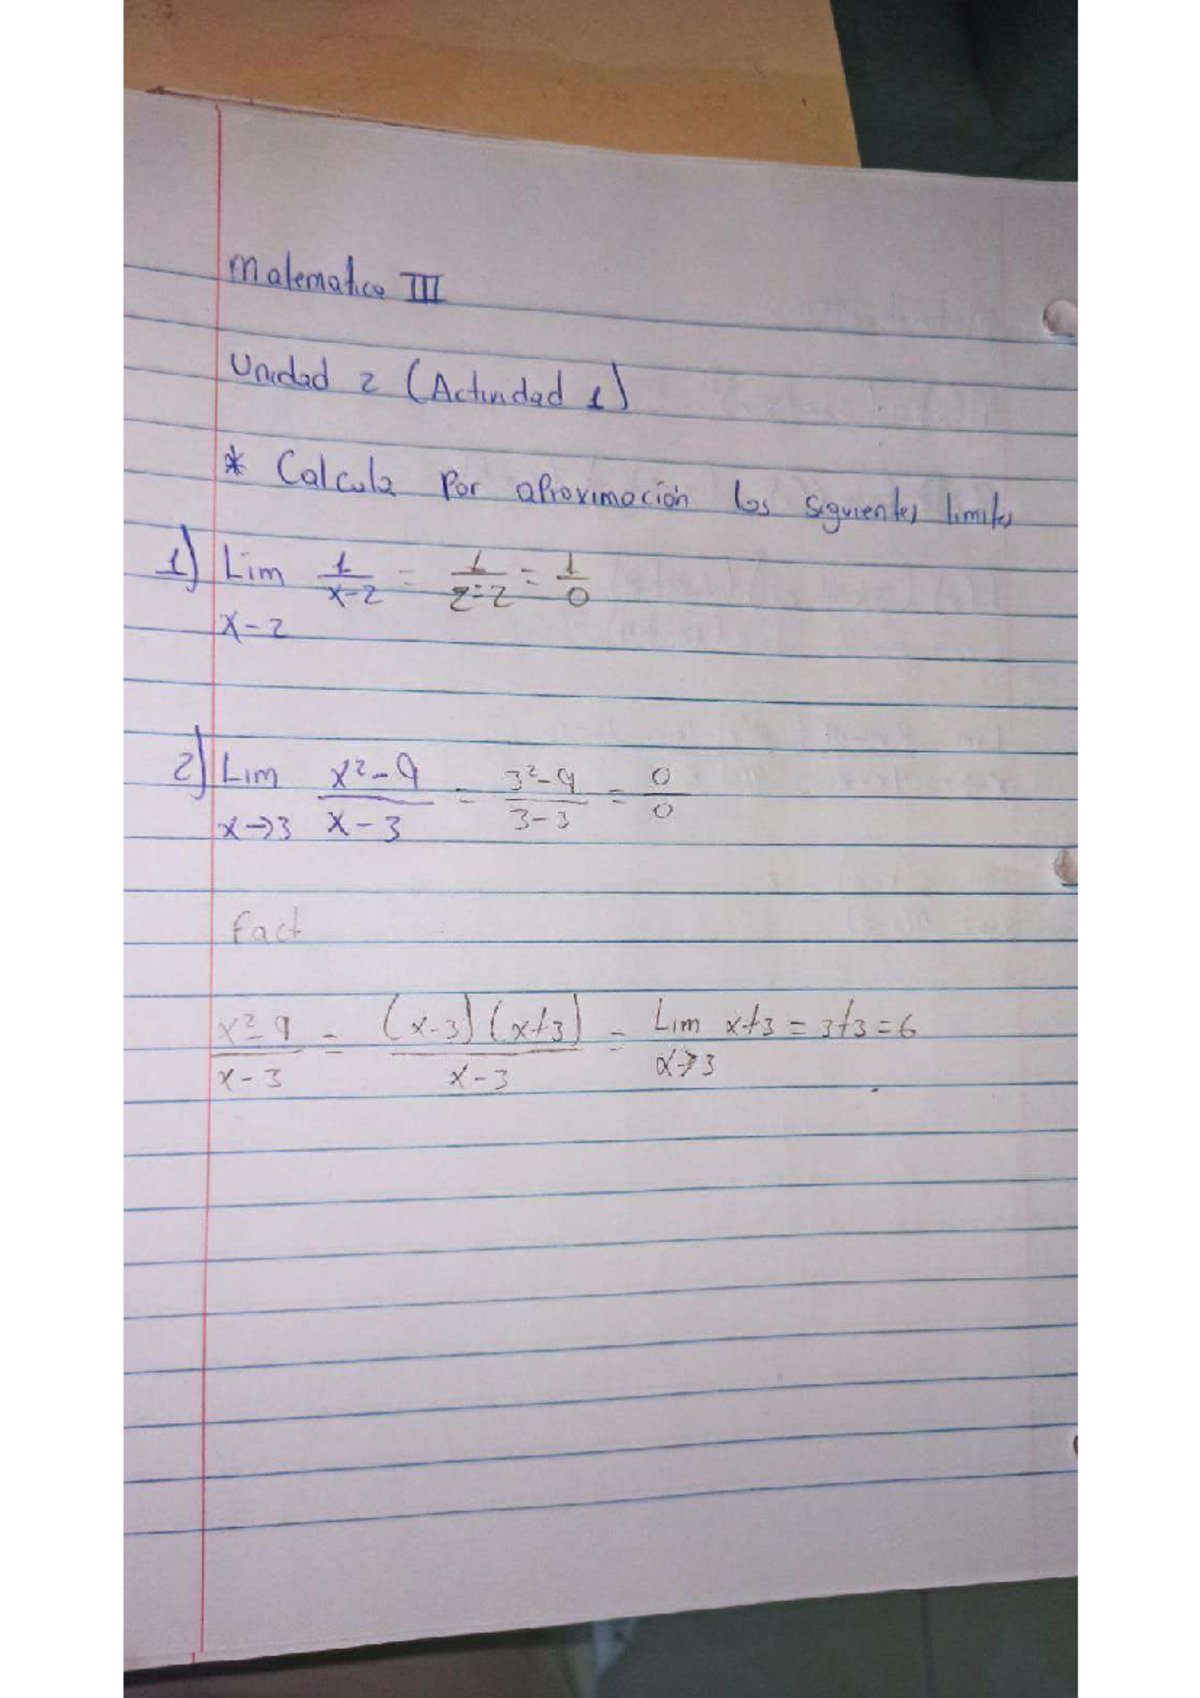 Matematica III
Unidad 2 (Actividad 1)
* Calcula por aproximación los siguientes limites
1) Lim 1/(x-2) = 1/(2-2) = 1/0
x-2
2) Lim (x²-9)/(x-3) = (3²-9)/(3-3) = 0/0
x→3
Fact
(x²-9)/(x-3) = (x-3)(x+3)/(x-3) = Lim x+3 = 3+3 = 6
x→3